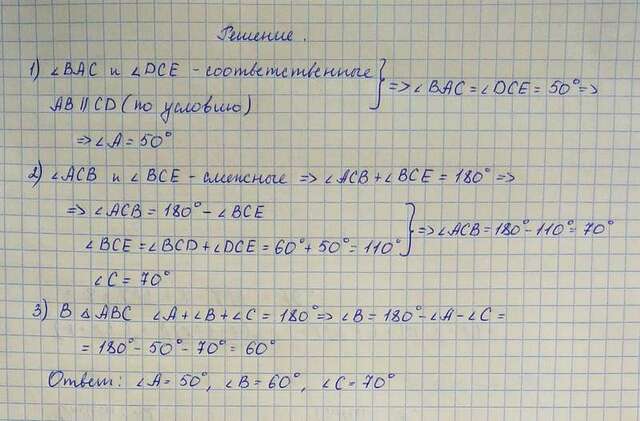 Решение.
1) ∠BAC и ∠DCE - соответственные
AB || CD (по условию)
} => ∠BAC = ∠DCE = 50° =>
=> ∠A = 50°
2) ∠ACB и ∠BCE - смежные => ∠ACB + ∠BCE = 180° =>
=> ∠ACB = 180° - ∠BCE
∠BCE = ∠BCD + ∠DCE = 60° + 50° = 110°
} => ∠ACB = 180° - 110° = 70°
∠C = 70°
3) В △ABC ∠A + ∠B + ∠C = 180° => ∠B = 180° - ∠A - ∠C =
= 180° - 50° - 70° = 60°
Ответ: ∠A = 50°, ∠B = 60°, ∠C = 70°